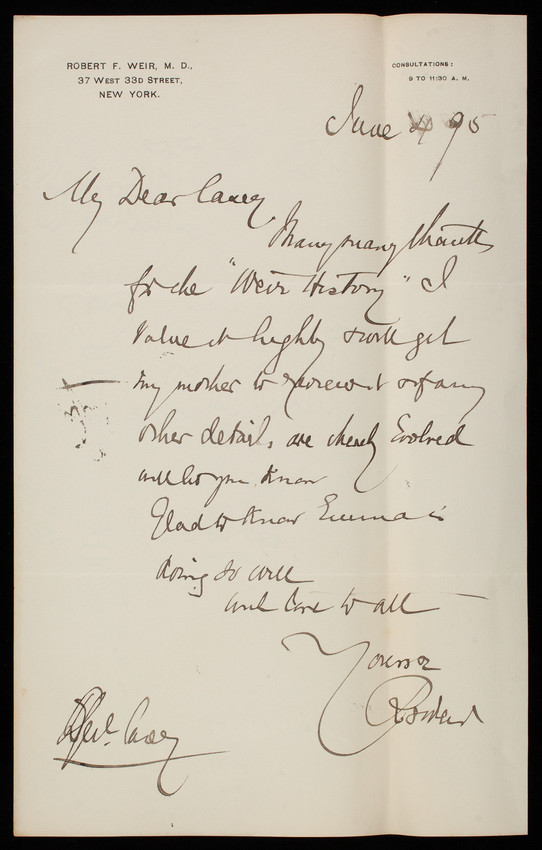 ROBERT F. WEIR, M. D.,
37 WEST 33D STREET,
NEW YORK.
CONSULTATIONS:
9 TO 11:30 A. M.
June 4 95
My Dear Casey
Many many thanks
for the "Weir History" I
value it highly & will get
my mother to review it & if any
other details are thereby Evolved
will let you know
Glad to know Emma is
doing so well
with love to all
Yours
R F Weir
Genl. Casey